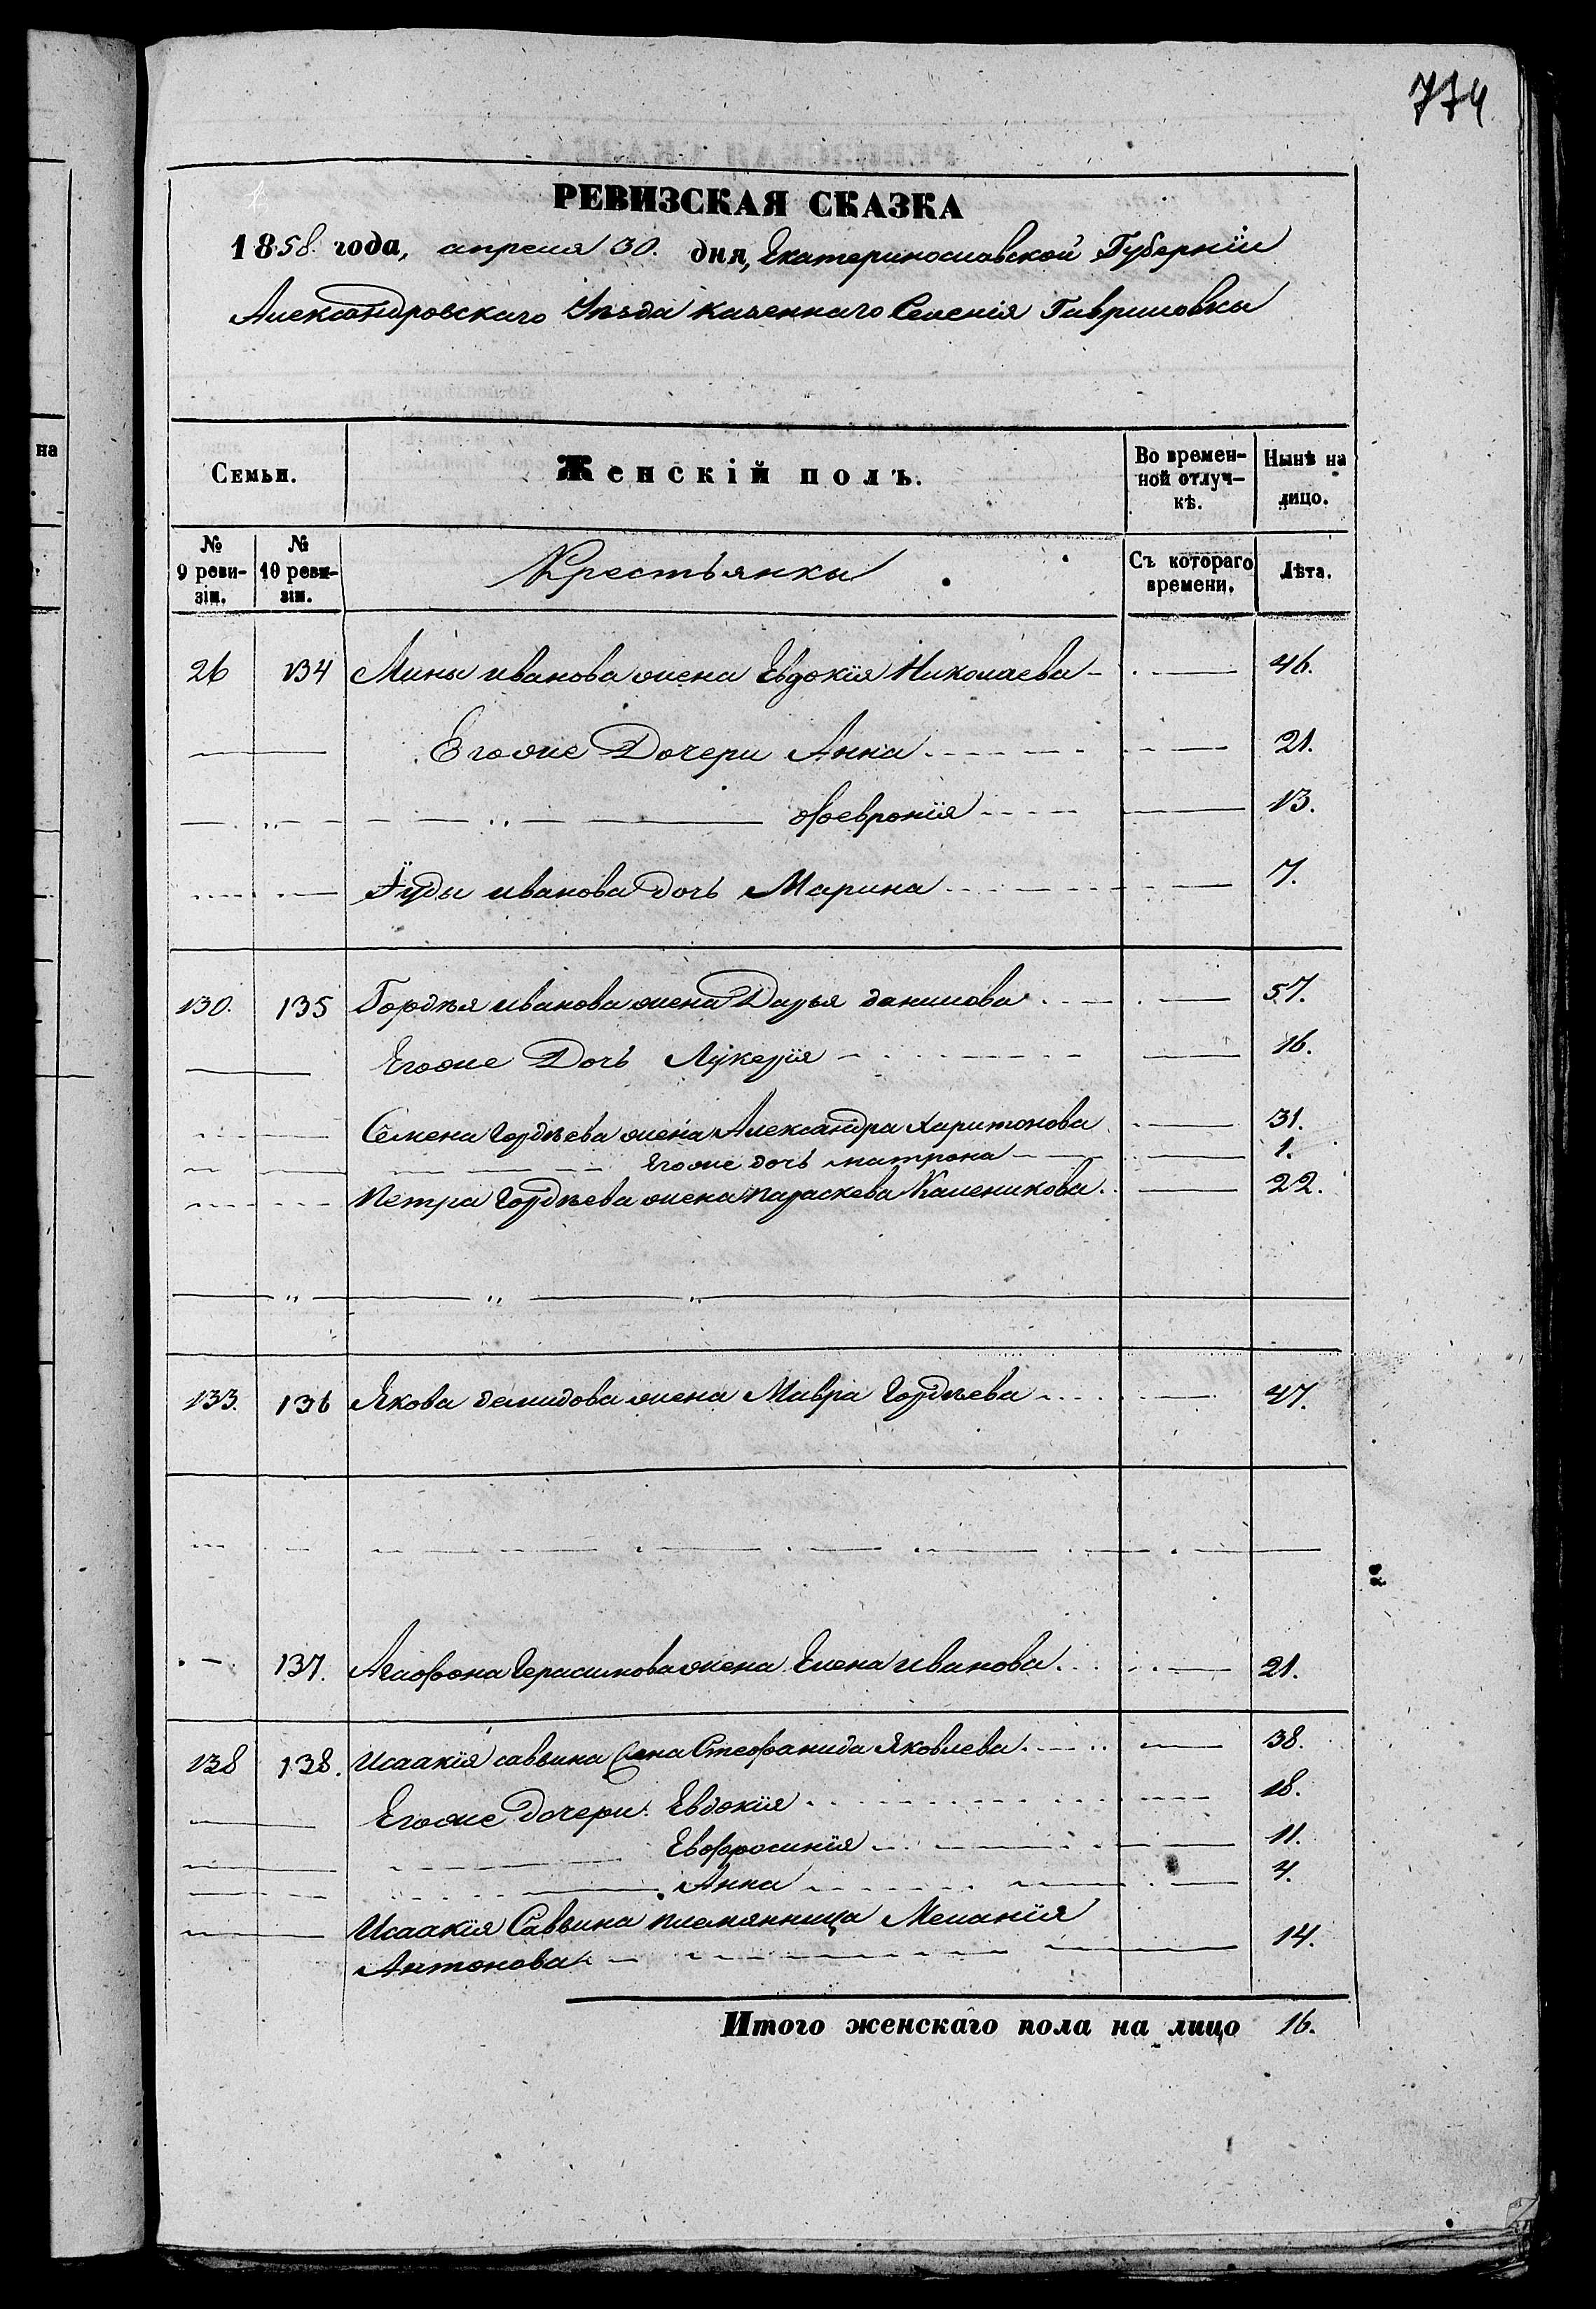 774
РЕВИЗСКАЯ СКАЗКА
1858. года, апреля 30. дня, Екатеринославской Губерніи
Александровскаго Уѣзда казеннаго Селенія Гавриловки
на
Семьи. Женскій полъ. Во времен-ной отлуч-кѣ. Нынѣ на лицо.
№ 9 реви-зіи. № 10 реви-зіи. Крестьянки Съ котораго времени. Лѣта.
26 134 Мины иванова жена Евдокія Николаева 46.
Егоже Дочери Анна 21.
Февронія 13.
Іуды иванова дочь Марина 7.
130. 135 Гордѣя иванова жена Дарья данилова 57.
Егоже Дочь Лукерія 16.
Семена Гордѣева жена Александра Харитонова 31.
Егоже дочь матрона 1.
Петра Гордѣева жена параскева Каленикова 22.
133. 136 Якова демидова жена Мавра Гордѣева 47.
137. Агафона Герасимова жена Елена иванова 21.
138 138. Исаакія саввина жена Стефанида Яковлева 38.
Егоже дочери: Евдокія 18.
Евфросинія 11.
Анна 4.
Исаакія Саввина племянница Меланія
Антонова 14.
Итого женскаго пола на лицо 16.